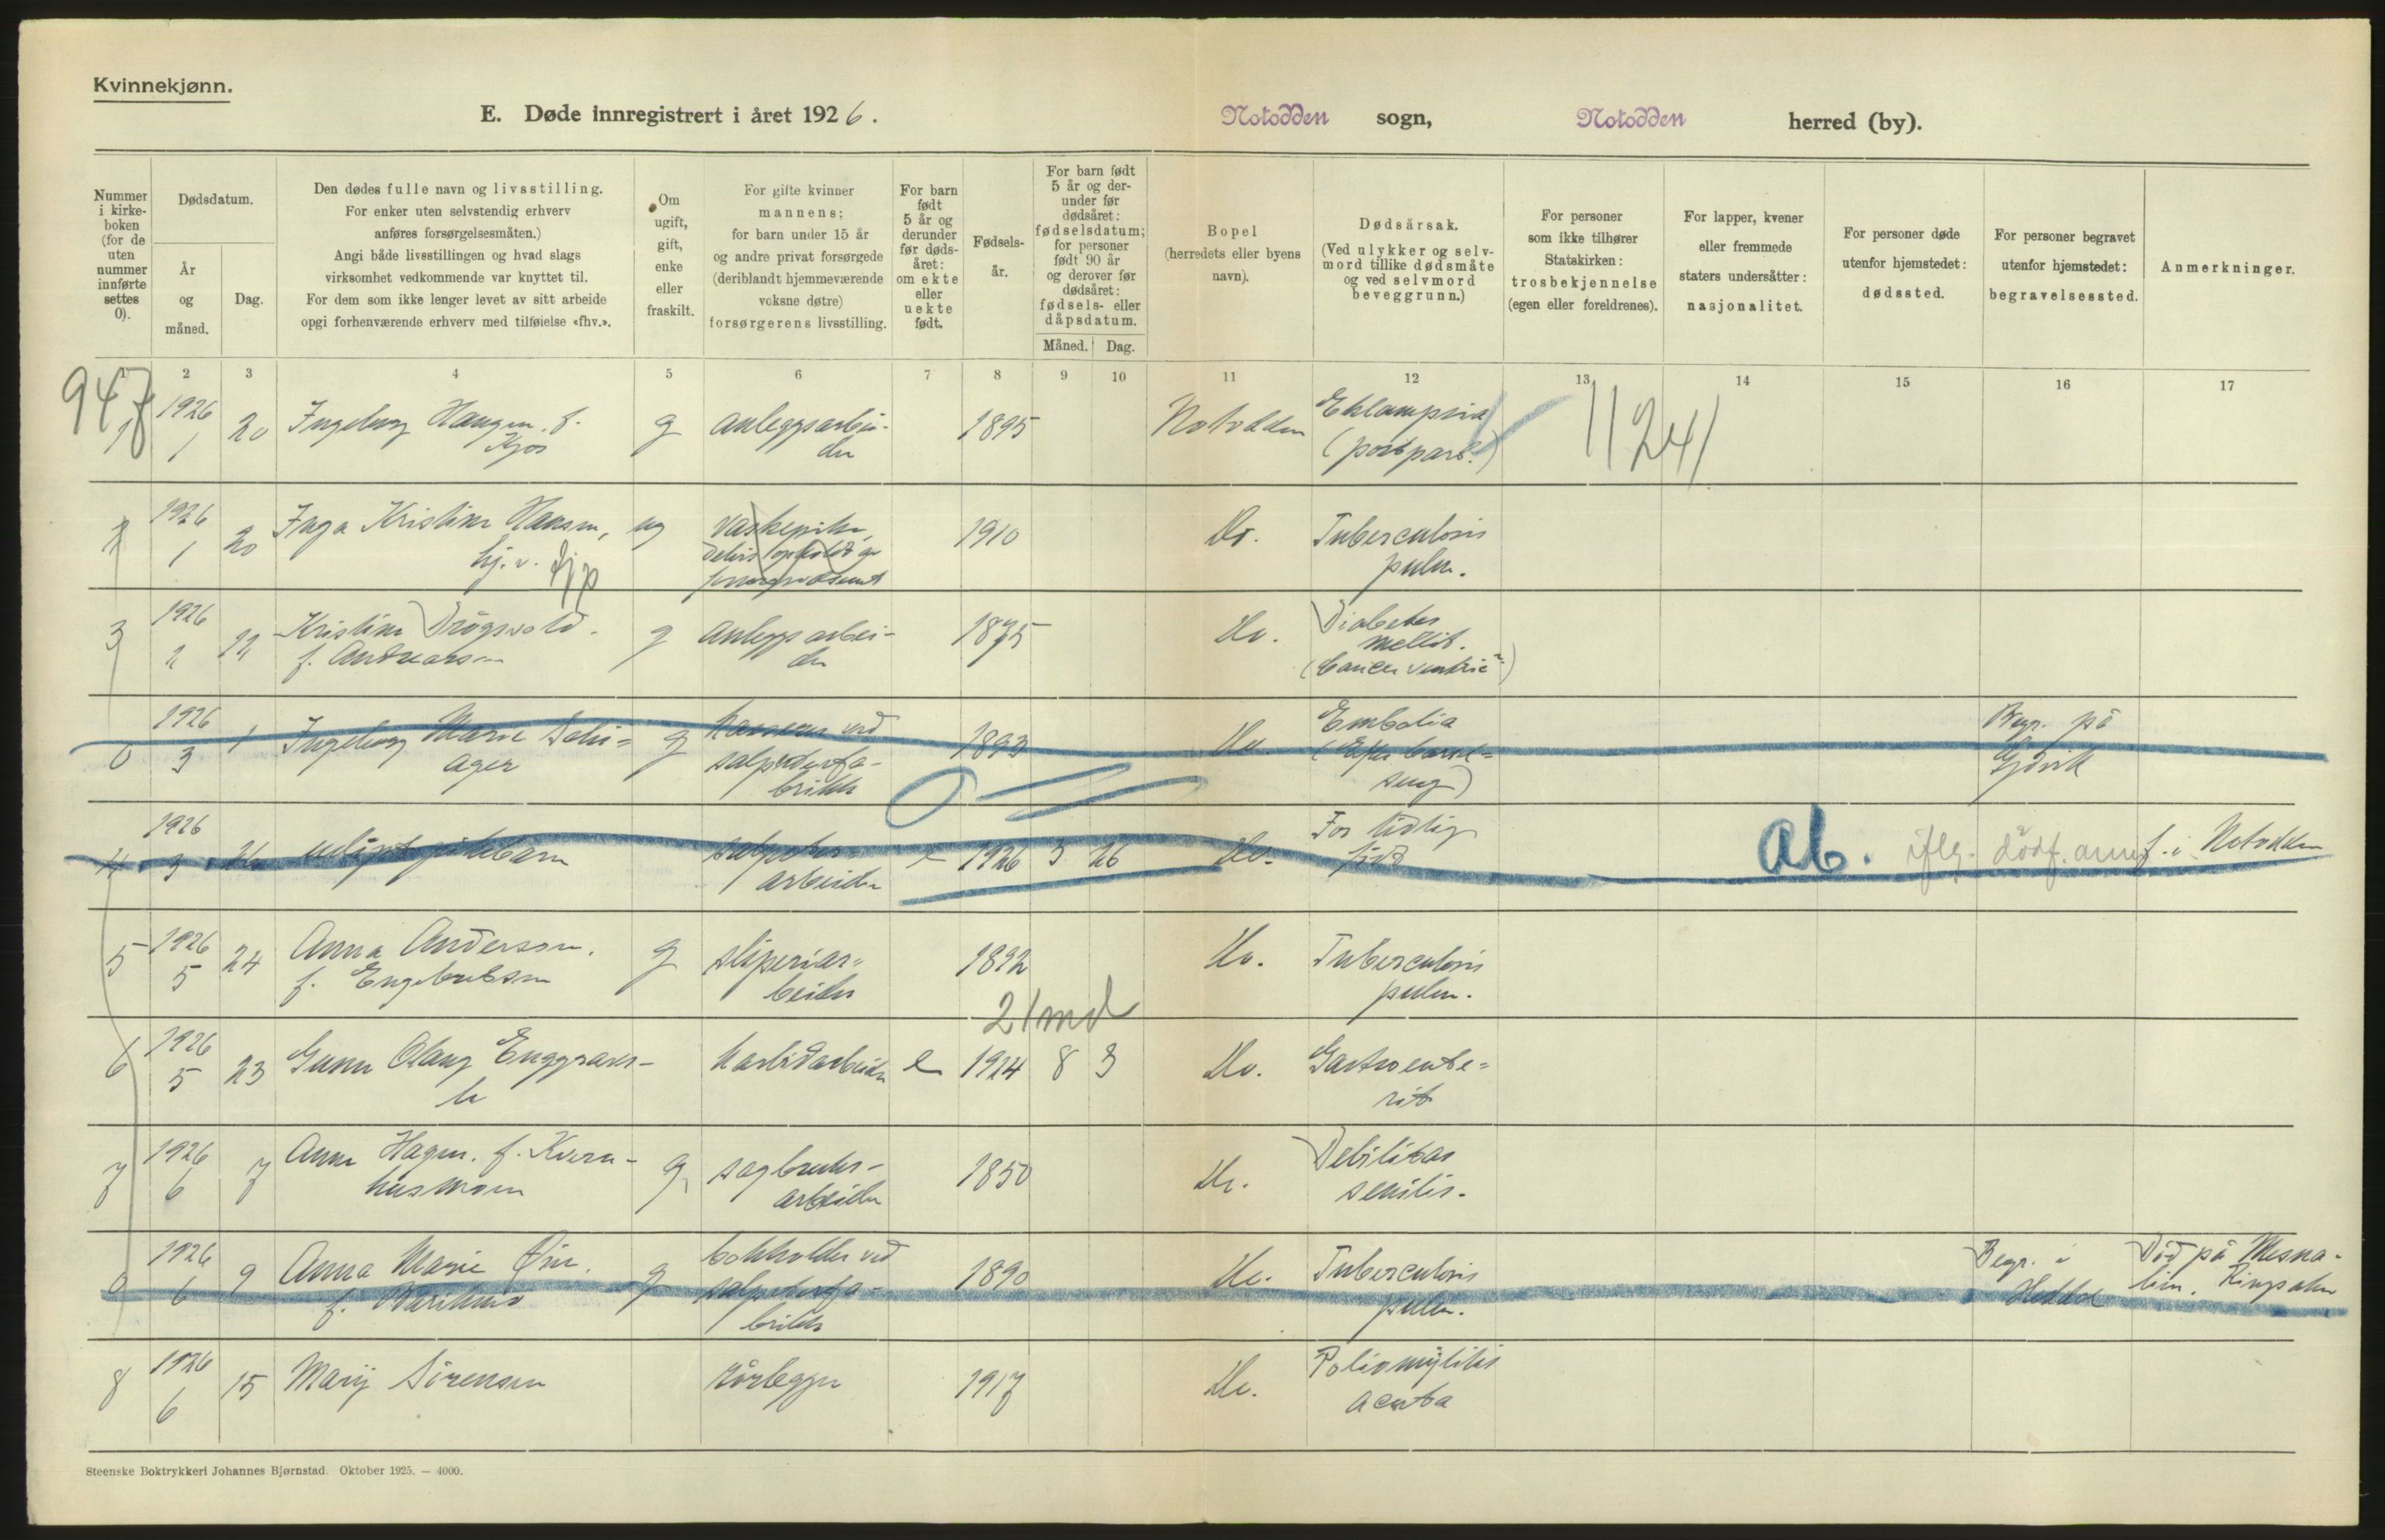 Kvinnekjønn.
E. Døde innregistrert i året 1926.
Notodden sogn, Notodden herred (by).
Nummer i kirkeboken (for de uten nummer innførte settes 0).
Dødsdatum.
År og måned.
Dag.
Den dødes fulle navn og livsstilling.
For enker uten selvstendig erhverv
anføres forsørgelsesmåten.)
Angi både livsstillingen og hvad slags
virksomhet vedkommende var knyttet til.
For dem som ikke lenger levet av sitt arbeide
opgi forhenværende erhverv med tilføielse «fhv.».
Om
ugift,
gift,
enke
eller
fraskilt.
For gifte kvinner
mannens;
for barn under 15 år
og andre privat forsørgede
(deriblandt hjemmeværende
voksne døtre)
forsørgerens livsstilling.
For barn
født
5 år og
derunder
før døds-
året:
om ekte
eller
uekte
født.
Fødsels-
år.
For barn født
5 år og der-
under før
dødsåret:
fødselsdatum;
for personer
født 90 år
og derover før
dødsåret:
fødsels- eller
dåpsdatum.
Måned. Dag.
Bopel
(herredets eller byens
navn).
Dødsårsak.
(Ved ulykker og selv-
mord tillike dødsmåte
og ved selvmord
beveggrunn.)
For personer
som ikke tilhører
Statskirken:
trosbekjennelse
(egen eller foreldrenes).
For lapper, kvener
eller fremmede
staters undersåtter:
nasjonalitet.
For personer døde
utenfor hjemstedet:
dødssted.
For personer begravet
utenfor hjemstedet:
begravelsessted.
Anmerkninger.
1 2 3 4 5 6 7 8 9 10 11 12 13 14 15 16 17
947
1 1926 1 20 Ingeborg Haugen f. Kjos g anleggsarbeider 1895 Notodden Eklampsia (postpart.) 11241
2 1926 1 20 Inga Kristine Hansen, hj. v. ug vaskepike, 1910 Do. Tuberculosis pulm.
3 1926 2 22 Kristine Drögsvold. f. Andreassen g anleggsarbeider 1875 Do. Diabetes mellit. (Cancer ventric?)
0 1926 3 1 Ingeborg Marie Solnager g ved salpeterfabrikk 1893 Do. Embolia (Efter barselseng) Begr. på Gjövik
4 1926 3 26 udöpt pikebarn salpeterarbeider e 1926 3 26 Do. For tidlig född Ab. iflg. dödf. anm f. i Notodden
5 1926 5 24 Anna Anderson. f. Engebretsen g sliperiarbeider 1892 Do. Tuberculosis pulm.
21 md
6 1926 5 23 Gunn Olaug karbidarbeider e 1924 8 3 Do. Gastroenterit
7 1926 6 7 Anne Hagen. f. Kvernhusmoen g. sagbruksarbeider 1850 Do. Debilitas senilis.
0 1926 6 9 Anna Marie f. g bokholder ved salpeterfabrikk 1890 Do. Tuberculosis pulm. Begr. i Heddal Död på Mesnalien. Ringsaker
8 1926 6 15 Mary Sörensen rörlegger 1917 Do. Poliomylitis acuta
Steenske Boktrykkeri Johannes Bjørnstad. Oktober 1925. — 4000.